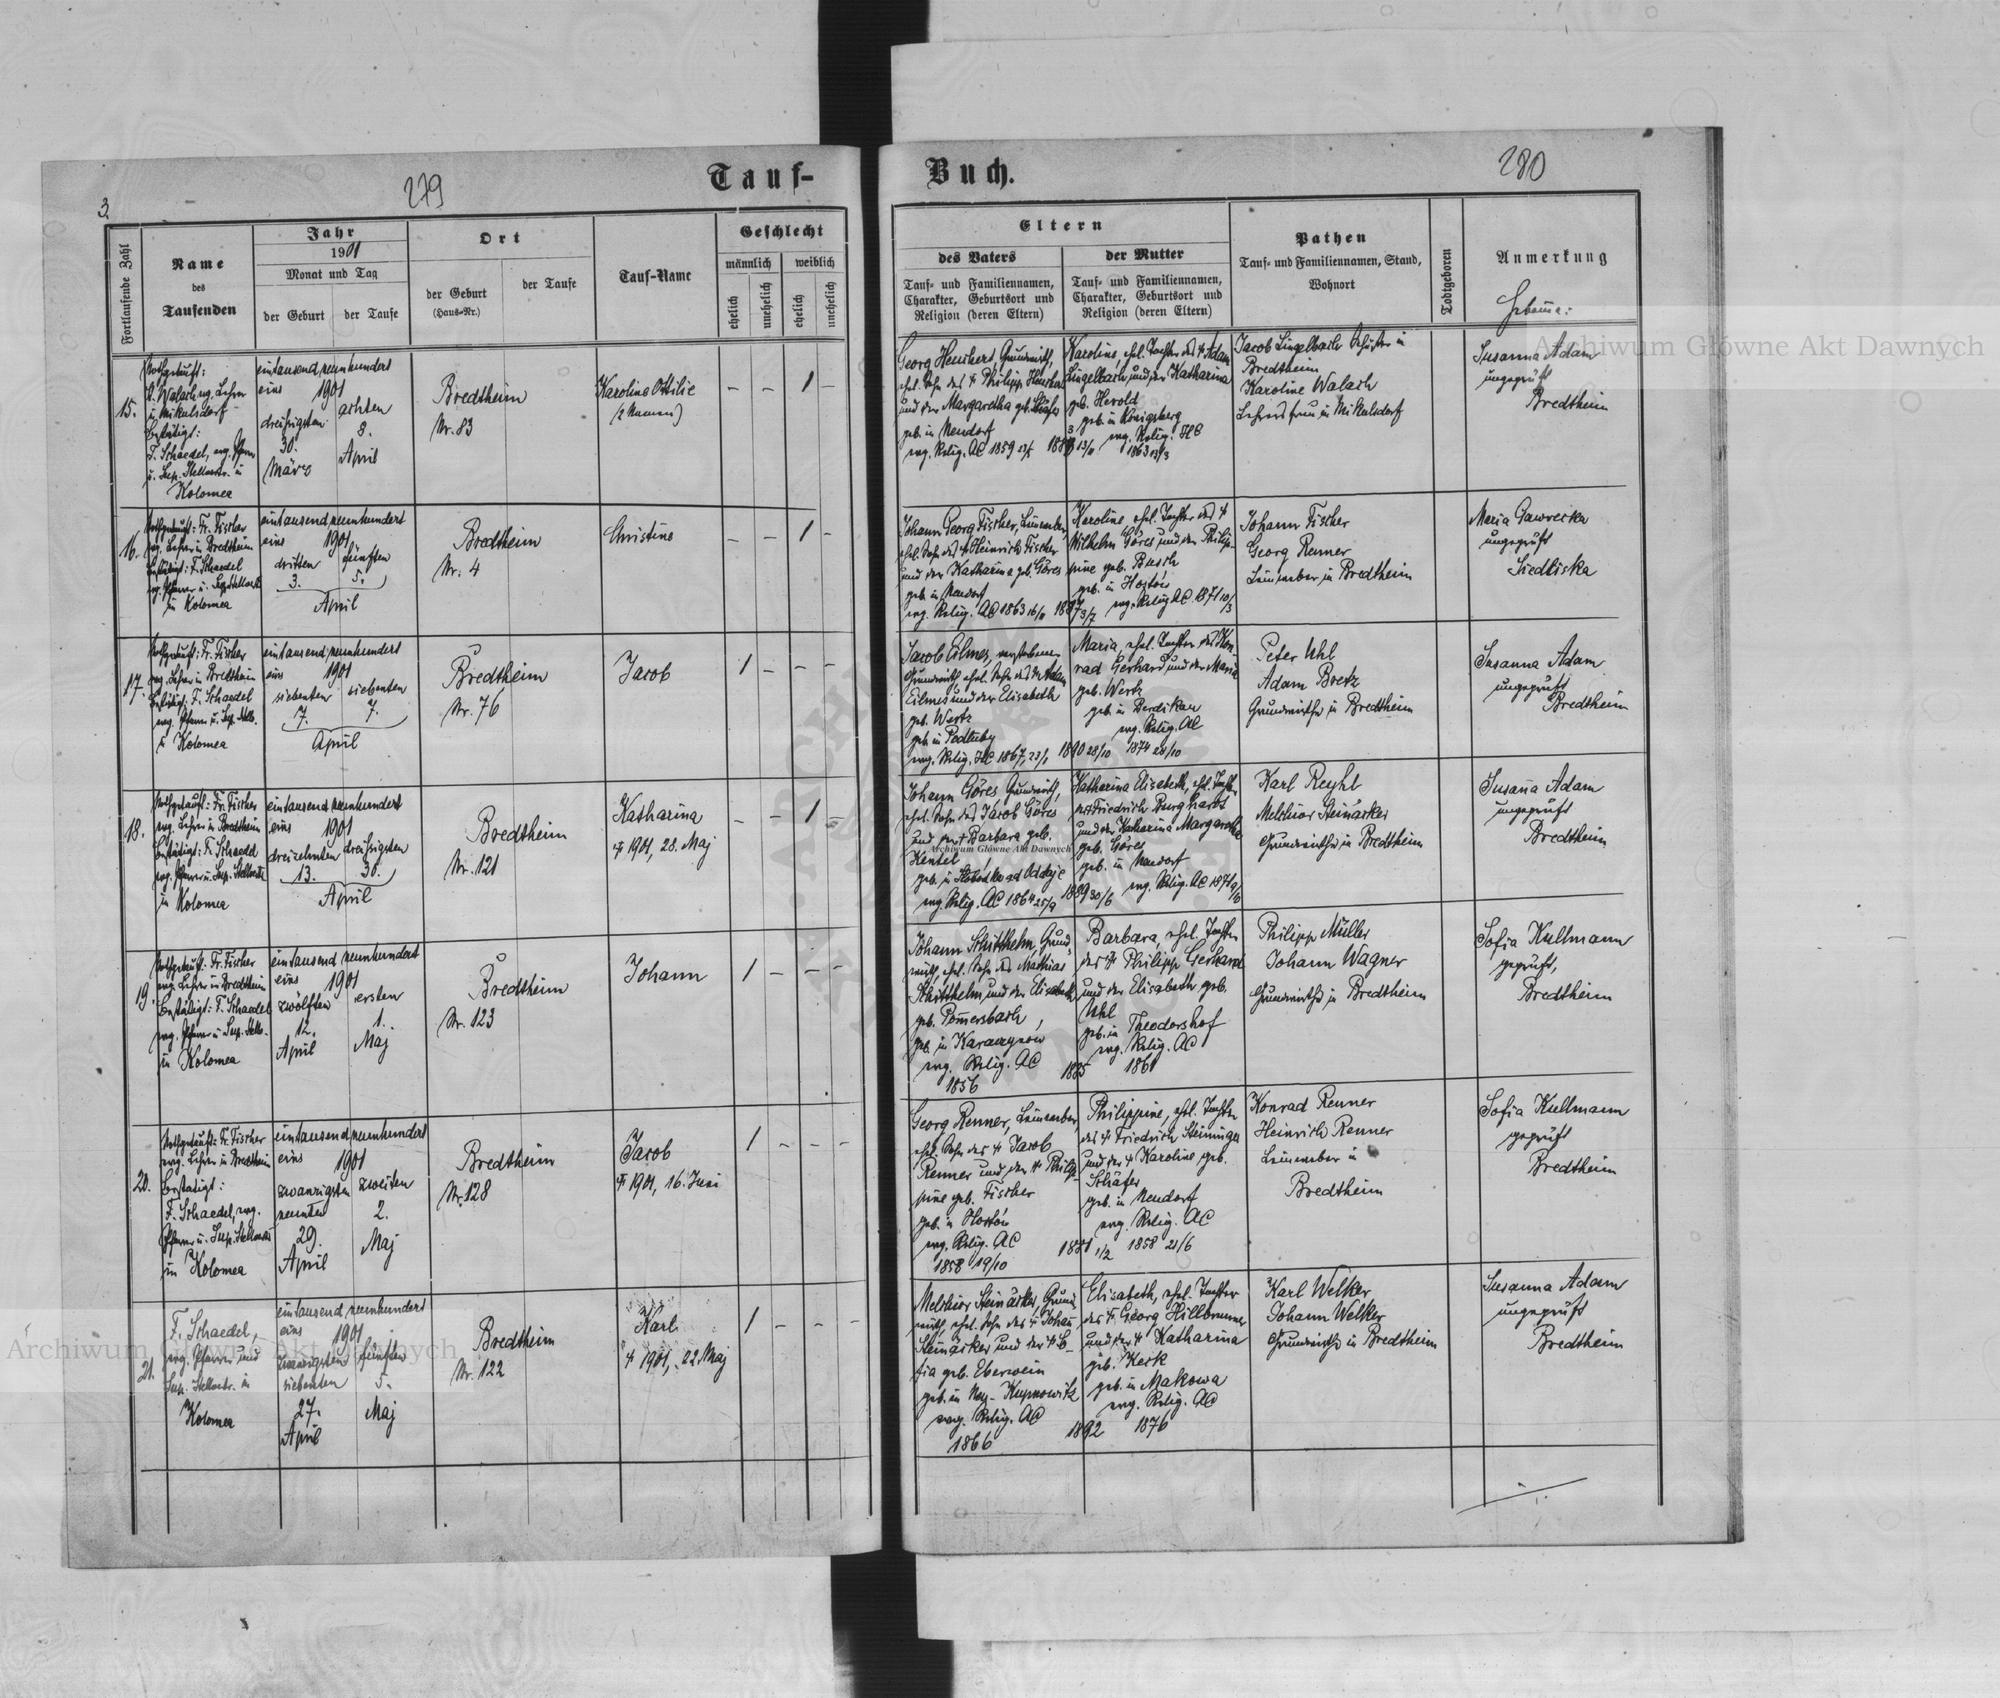 279
Tauf-
Buch.
280
3.
Fortlaufende Zahl
Name
des
Taufenden
Jahr
1901
Monat und Tag
der Geburt
der Taufe
Ort
der Geburt
(Haus-Nr.)
der Taufe
Tauf-Name
Geschlecht
männlich
weiblich
ehelich
unehelich
ehelich
unehelich
Eltern
des Vaters
Tauf- und Familiennamen,
Charakter, Geburtsort und
Religion (deren Eltern)
der Mutter
Tauf- und Familiennamen,
Charakter, Geburtsort und
Religion (deren Eltern)
Pathen
Tauf- und Familiennamen, Stand,
Wohnort
Todtgeboren
Anmerkung
15.
Nothgetauft:
Walach, evg. Lehrer
in Mikulsdorf
Bestätigt:
F. Schaedel, evg. Pfarrer
u. Sup. Stellvertr. in
Kolomea
eintausend neunhundert
eins 1901
dreißigsten
30.
März
achten
8.
April
Bredtheim
Nr. 83
Karoline Ottilie
(2 Namen)
- - 1 -
Georg Heuchert, Grundwirth,
ehel. Sohn des † Philipp Heuchert
und der Margaretha geb. Schäfer
geb. in Neudorf
evg. Relig. AC 1859
Karoline, ehel. Tochter des † Adam
Lingelbach und der Katharina
geb. Herold
geb. in Königsberg
evg. Relig. HC
1863
Jacob Lingelbach in
Bredtheim
Karoline Walach
Lehrersfrau in Mikulsdorf
Susanna Adam
ungeprüft
Bredtheim
16.
Nothgetauft: Fr. Fischer
evg. Lehrer in Bredtheim
Bestätigt: F. Schaedel
evg. Pfarrer u. Sup. Stellvertr.
in Kolomea
eintausend neunhundert
eins 1901
dritten
3.
fünften
5.
April
Bredtheim
Nr. 4
Christine
- - 1 -
Johann Georg Fischer, Leinweber,
ehel. Sohn des † Heinrich Fischer
und der Katharine geb. Göres
geb. in Neudorf
evg. Relig. AC 1863 16/11
Karoline, ehel. Tochter des †
Wilhelm Göres und der Philip-
pine geb. Busch
geb. in Hostów
evg. Relig AC 1871 10/3
Johann Fischer
Georg Renner
Leinweber in Bredtheim
Maria Gawrecka
ungeprüft
Siedliska
17.
Nothgetauft: Fr. Fischer
evg. Lehrer in Bredtheim
Bestätigt: F. Schaedel
evg. Pfarrer u. Sup. Stellv.
in Kolomea
eintausend neunhundert
eins 1901
siebenten
7.
siebenten
7.
April
Bredtheim
Nr. 76
Jacob
1 - - -
Jacob Eilmes, verstorbener
Grundwirth, ehel. Sohn des † Adam
Eilmes und der Elisabeth
geb. Wertz
geb. in Podluby
evg. Relig. HC 1867, 23/1
1890 28/10
Maria, ehel. Tochter des Kon-
rad Gerhard und der Maria
geb. Wertz
geb. in Berdikau
evg. Relig. AC
1874 28/10
Peter Uhl
Adam Bretz
Grundwirthe in Bredtheim
Susanna Adam
ungeprüft
Bredtheim
18.
Nothgetauft: Fr. Fischer
evg. Lehrer in Bredtheim
Bestätigt: F. Schaedel
evg. Pfarrer u. Sup. Stellvertr.
in Kolomea
eintausend neunhundert
eins 1901
dreizehnten
13.
dreißigsten
30.
April
Bredtheim
Nr. 121
Katharina
† 1901, 28. Maj
- - 1 -
Johann Göres Grundwirth,
ehel. Sohn des Jacob Göres
und der † Barbara geb.
Kentel
evg. Relig. AC 1864 25/9
1889 30/6
Katharina Elisabeth, ehel. Tochter
des † Friedrich Burghardt
und der Katharina Margaretha
geb. Göres
geb. in Neudorf
evg. Relig. AC 1871
Karl Reyhl
Melchior Steinacker
Grundwirthe in Bredtheim
Susanna Adam
ungeprüft
Bredtheim
19.
Nothgetauft: Fr. Fischer
evg. Lehrer in Bredtheim
Bestätigt: F. Schaedel
evg. Pfarrer u. Sup. Stellv.
in Kolomea
eintausend neunhundert
eins 1901
zwölften
12.
April
ersten
1.
Maj
Bredtheim
Nr. 123
Johann
1 - - -
Johann Schitthelm, Grund-
wirth, ehel. Sohn des Mathias
Schitthelm, und der Elisabeth
geb. Pommersbach,
evg. Relig. AC
1856
1885
Barbara, ehel. Tochter
des † Philipp Gerhard
und der Elisabeth geb.
Uhl
geb. in Theodorshof
evg. Relig. AC
1861
Philipp Müller
Johann Wagner
Grundwirthe in Bredtheim
Sofia Kullmann
geprüft,
Bredtheim
20.
Nothgetauft: Fr. Fischer
evg. Lehrer in Bredtheim
Bestätigt:
F. Schaedel, evg.
Pfarrer u. Sup. Stellvertr.
in Kolomea
eintausend neunhundert
eins 1901
zwanzigsten
neunten
29.
April
zweiten
2.
Maj
Bredtheim
Nr. 128
Jacob
† 1901, 16. Juni
1 - - -
Georg Renner, Leinweber
ehel. Sohn des † Jacob
Renner und der † Philip-
pine geb. Fischer
geb. in Hostów
evg. Relig. AC
1858 19/10
1881 1/2
Philippine, ehel. Tochter
des † Friedrich Steininger
und der † Karoline geb.
Schäfer
geb. in Neudorf
evg. Relig. AC
1858 21/6
Konrad Renner
Heinrich Renner
Leinweber in
Bredtheim
Sofia Kullmann
geprüft
Bredtheim
21.
F. Schaedel,
evg. Pfarrer und
Sup. Stellvertr. in
Kolomea
eintausend neunhundert
eins 1901
zwanzigsten
siebenten
27.
April
fünften
5.
Maj
Bredtheim
Nr. 122
Karl
† 1901, 22. Maj
1 - - -
Melchior Steinacker, Grund-
wirth, ehel. Sohn des † Johann
Steinacker und der † So-
fia geb. Eberwein
geb. in Neu-Kupnowitz
evg. Relig. AC
1866
1892
Elisabeth, ehel. Tochter
des †. Georg Hillbrunner
und der † Katharina
geb. Keck
geb. in Makowa
evg. Relig. AC
1876
Karl Welker
Johann Welker
Grundwirthe in Bredtheim
Susanna Adam
ungeprüft
Bredtheim
Archiwum Główne Akt Dawnych
Archiwum Główne Akt Dawnych
Archiwum Główne Akt Dawnych